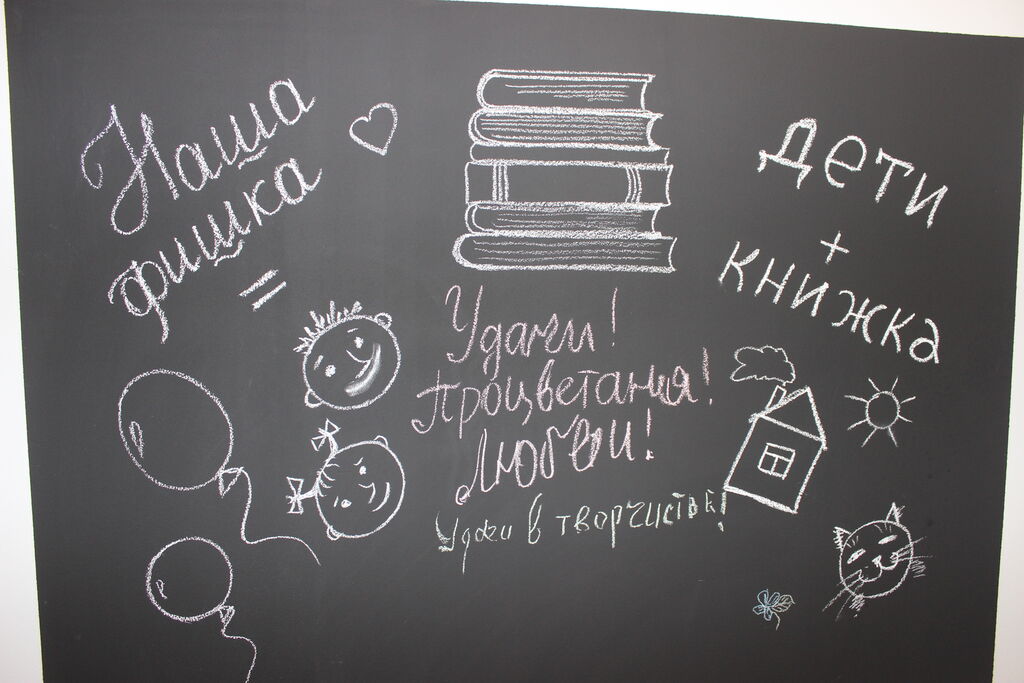 Наша
фишка
=
дети
+
книжка
Удачи!
Процветания!
Любви!
Удачи в творчистве!